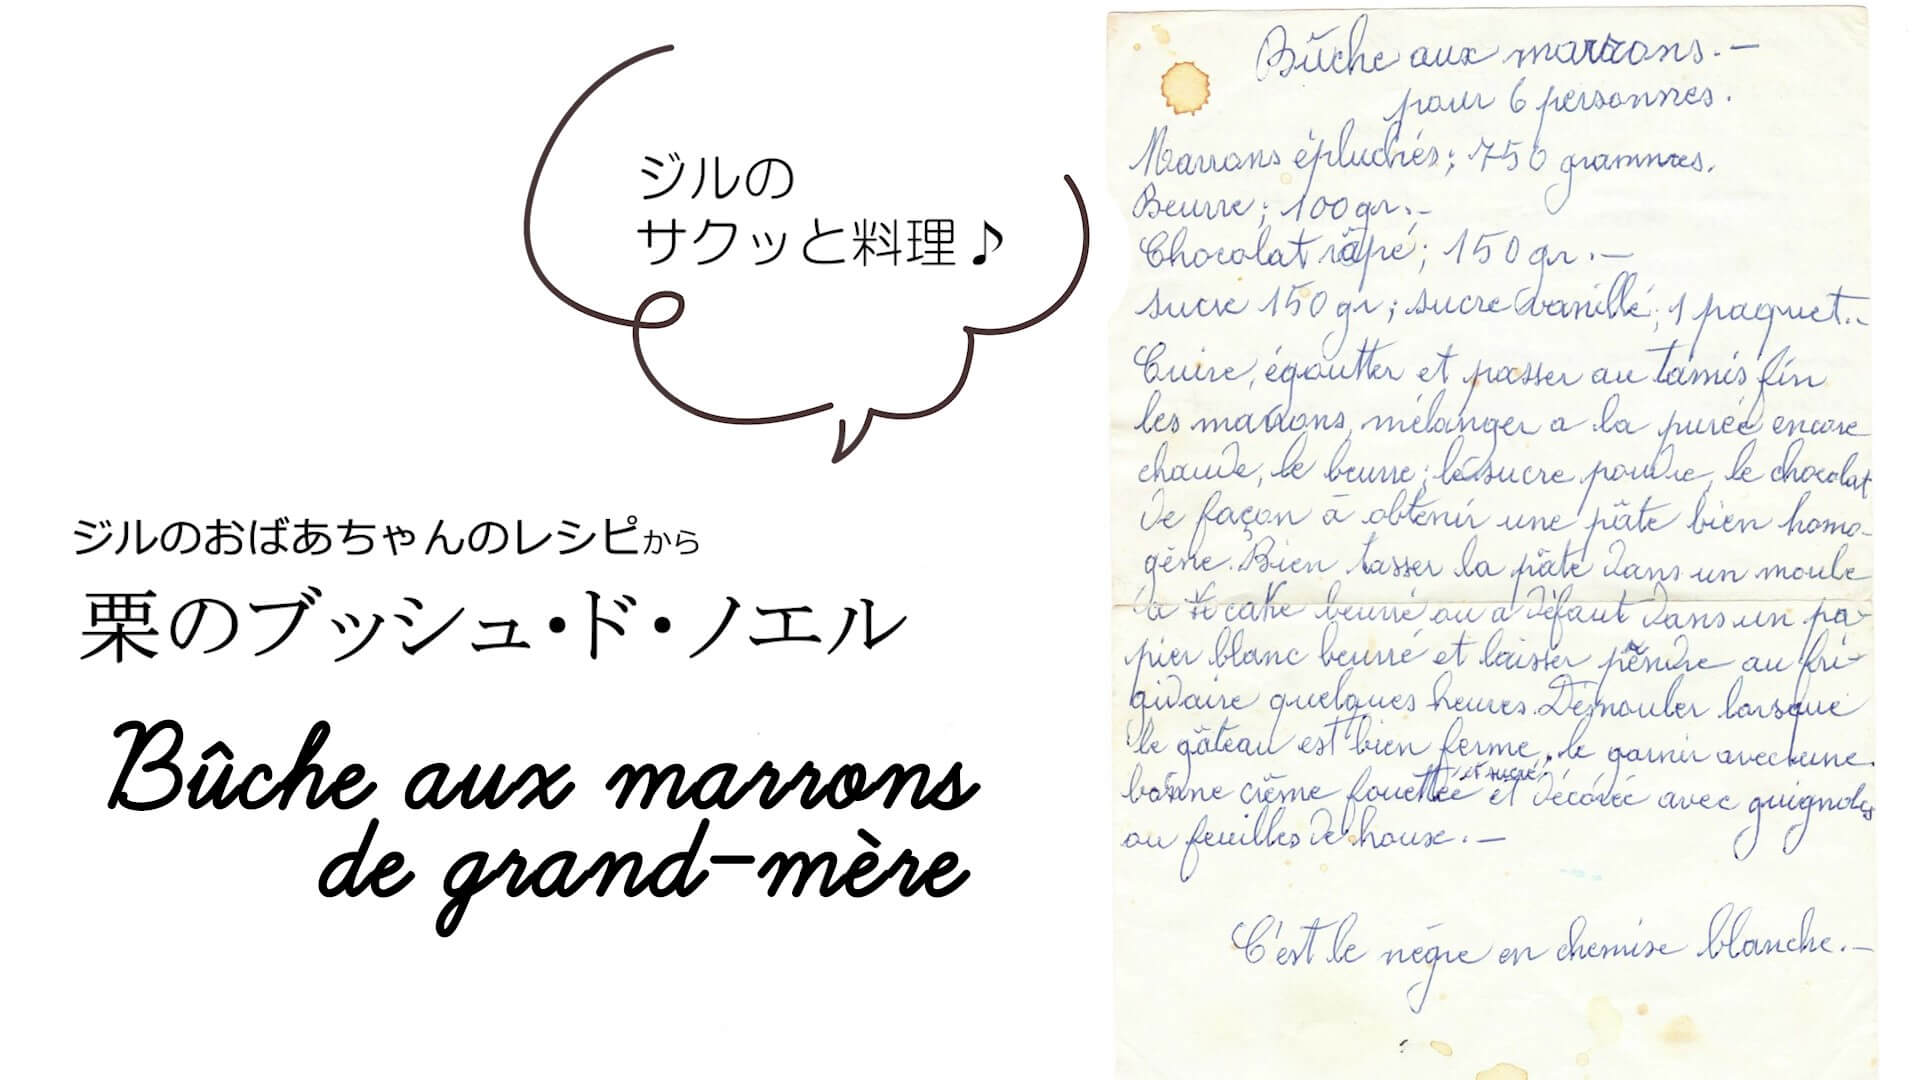 ジルの
サクッと料理♪
ジルのおばあちゃんのレシピから
栗のブッシュ・ド・ノエル
Bûche aux marrons
de grand-mère
Bûche aux marrons.-
pour 6 personnes.
Marrons épluchés; 750 grammes.
Beurre; 100gr.-
Chocolat râpé; 150 gr.-
sucre 150 gr; sucre vanillé; 1 paquet.-
Cuire, égoutter et passer au tamis fin
les marrons, mélanger a la purée encore
chaude, le beurre; le sucre poudre, le chocolat
de façon à obtenir une pâte bien homo-
gène. Bien tasser la pâte dans un moule
à cake beurré ou a défaut dans un pa-
pier blanc beurré et laisser prendre au fri-
gidaire quelques heures. Démouler lorsque
le gâteau est bien ferme, le garnir avec une
bonne crême fouettée et sucré et décorée avec guignoles
ou feuilles de houx.-
C'est le nègre en chemise blanche.-